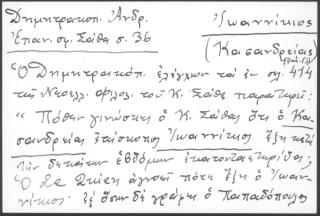 Δημητρακοπ. Ἀνδρ.
Ἐπαν. σφ. Σάθα σ. 36
Ἰωαννίκιος
(Κασανδρείας
Ὁ Δημητρακόπ. ἐλέγχων τὰ ἐν σ. 414
τῆς Νεοελλ. Φιλολ. τοῦ Κ. Σάθα παρατηρεῖ:
"Πόθεν γινώσκει ὁ Κ. Σάθας ὅτι ὁ Κα-
σανδρείας ἐπίσκοπος Ἰωαννίκιος ἔζη κατὰ
τὴν δεκάτην ἑβδόμην ἑκατονταετηρίδα;
Ὁ Le Quien ἀγνοεῖ πότε ἔζη ὁ Ἰωαν-
νίκιος. ἐξ ὅσων δὲ γράφει ὁ Παπαδόπουλος